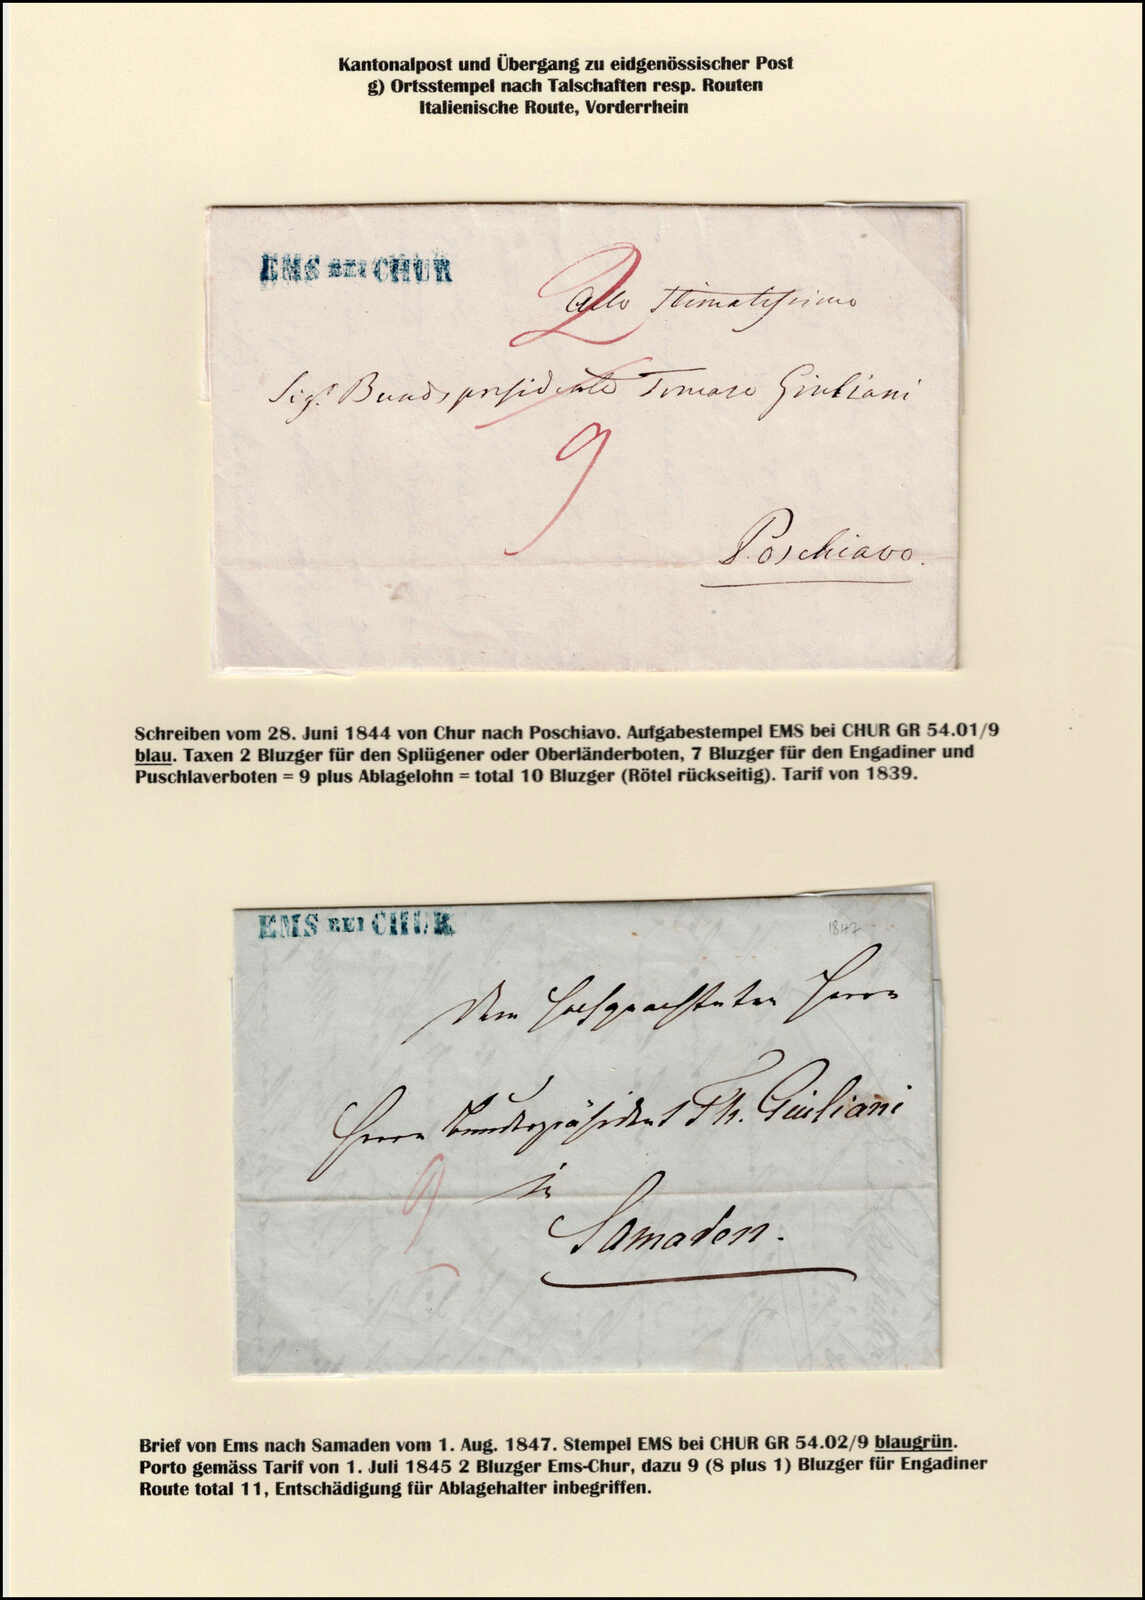 Kantonalpost und Übergang zu eidgenössischer Post
g) Ortsstempel nach Talschaften resp. Routen
Italienische Route, Vorderrhein
EMS BEI CHUR
2
Allo Stimatissimo
Sigr. Bundspresidente Tomaso Giuliani
9
Poschiavo.
Schreiben vom 28. Juni 1844 von Chur nach Poschiavo. Aufgabestempel EMS bei CHUR GR 54.01/9
blau. Taxen 2 Bluzger für den Splügener oder Oberländerboten, 7 Bluzger für den Engadiner und
Puschlaverboten = 9 plus Ablagelohn = total 10 Bluzger (Rötel rückseitig). Tarif von 1839.
EMS BEI CHUR
1847
Dem hochgeachteten Herrn
Herrn Bundespräsident Th. Giuliani
9
in
Samaden.
Brief von Ems nach Samaden vom 1. Aug. 1847. Stempel EMS bei CHUR GR 54.02/9 blaugrün.
Porto gemäss Tarif von 1. Juli 1845 2 Bluzger Ems-Chur, dazu 9 (8 plus 1) Bluzger für Engadiner
Route total 11, Entschädigung für Ablagehalter inbegriffen.